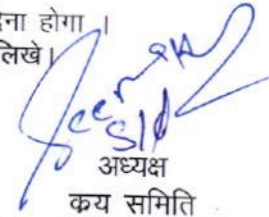 देना होगा ।
लिखे।
अध्यक्ष
कय समिति